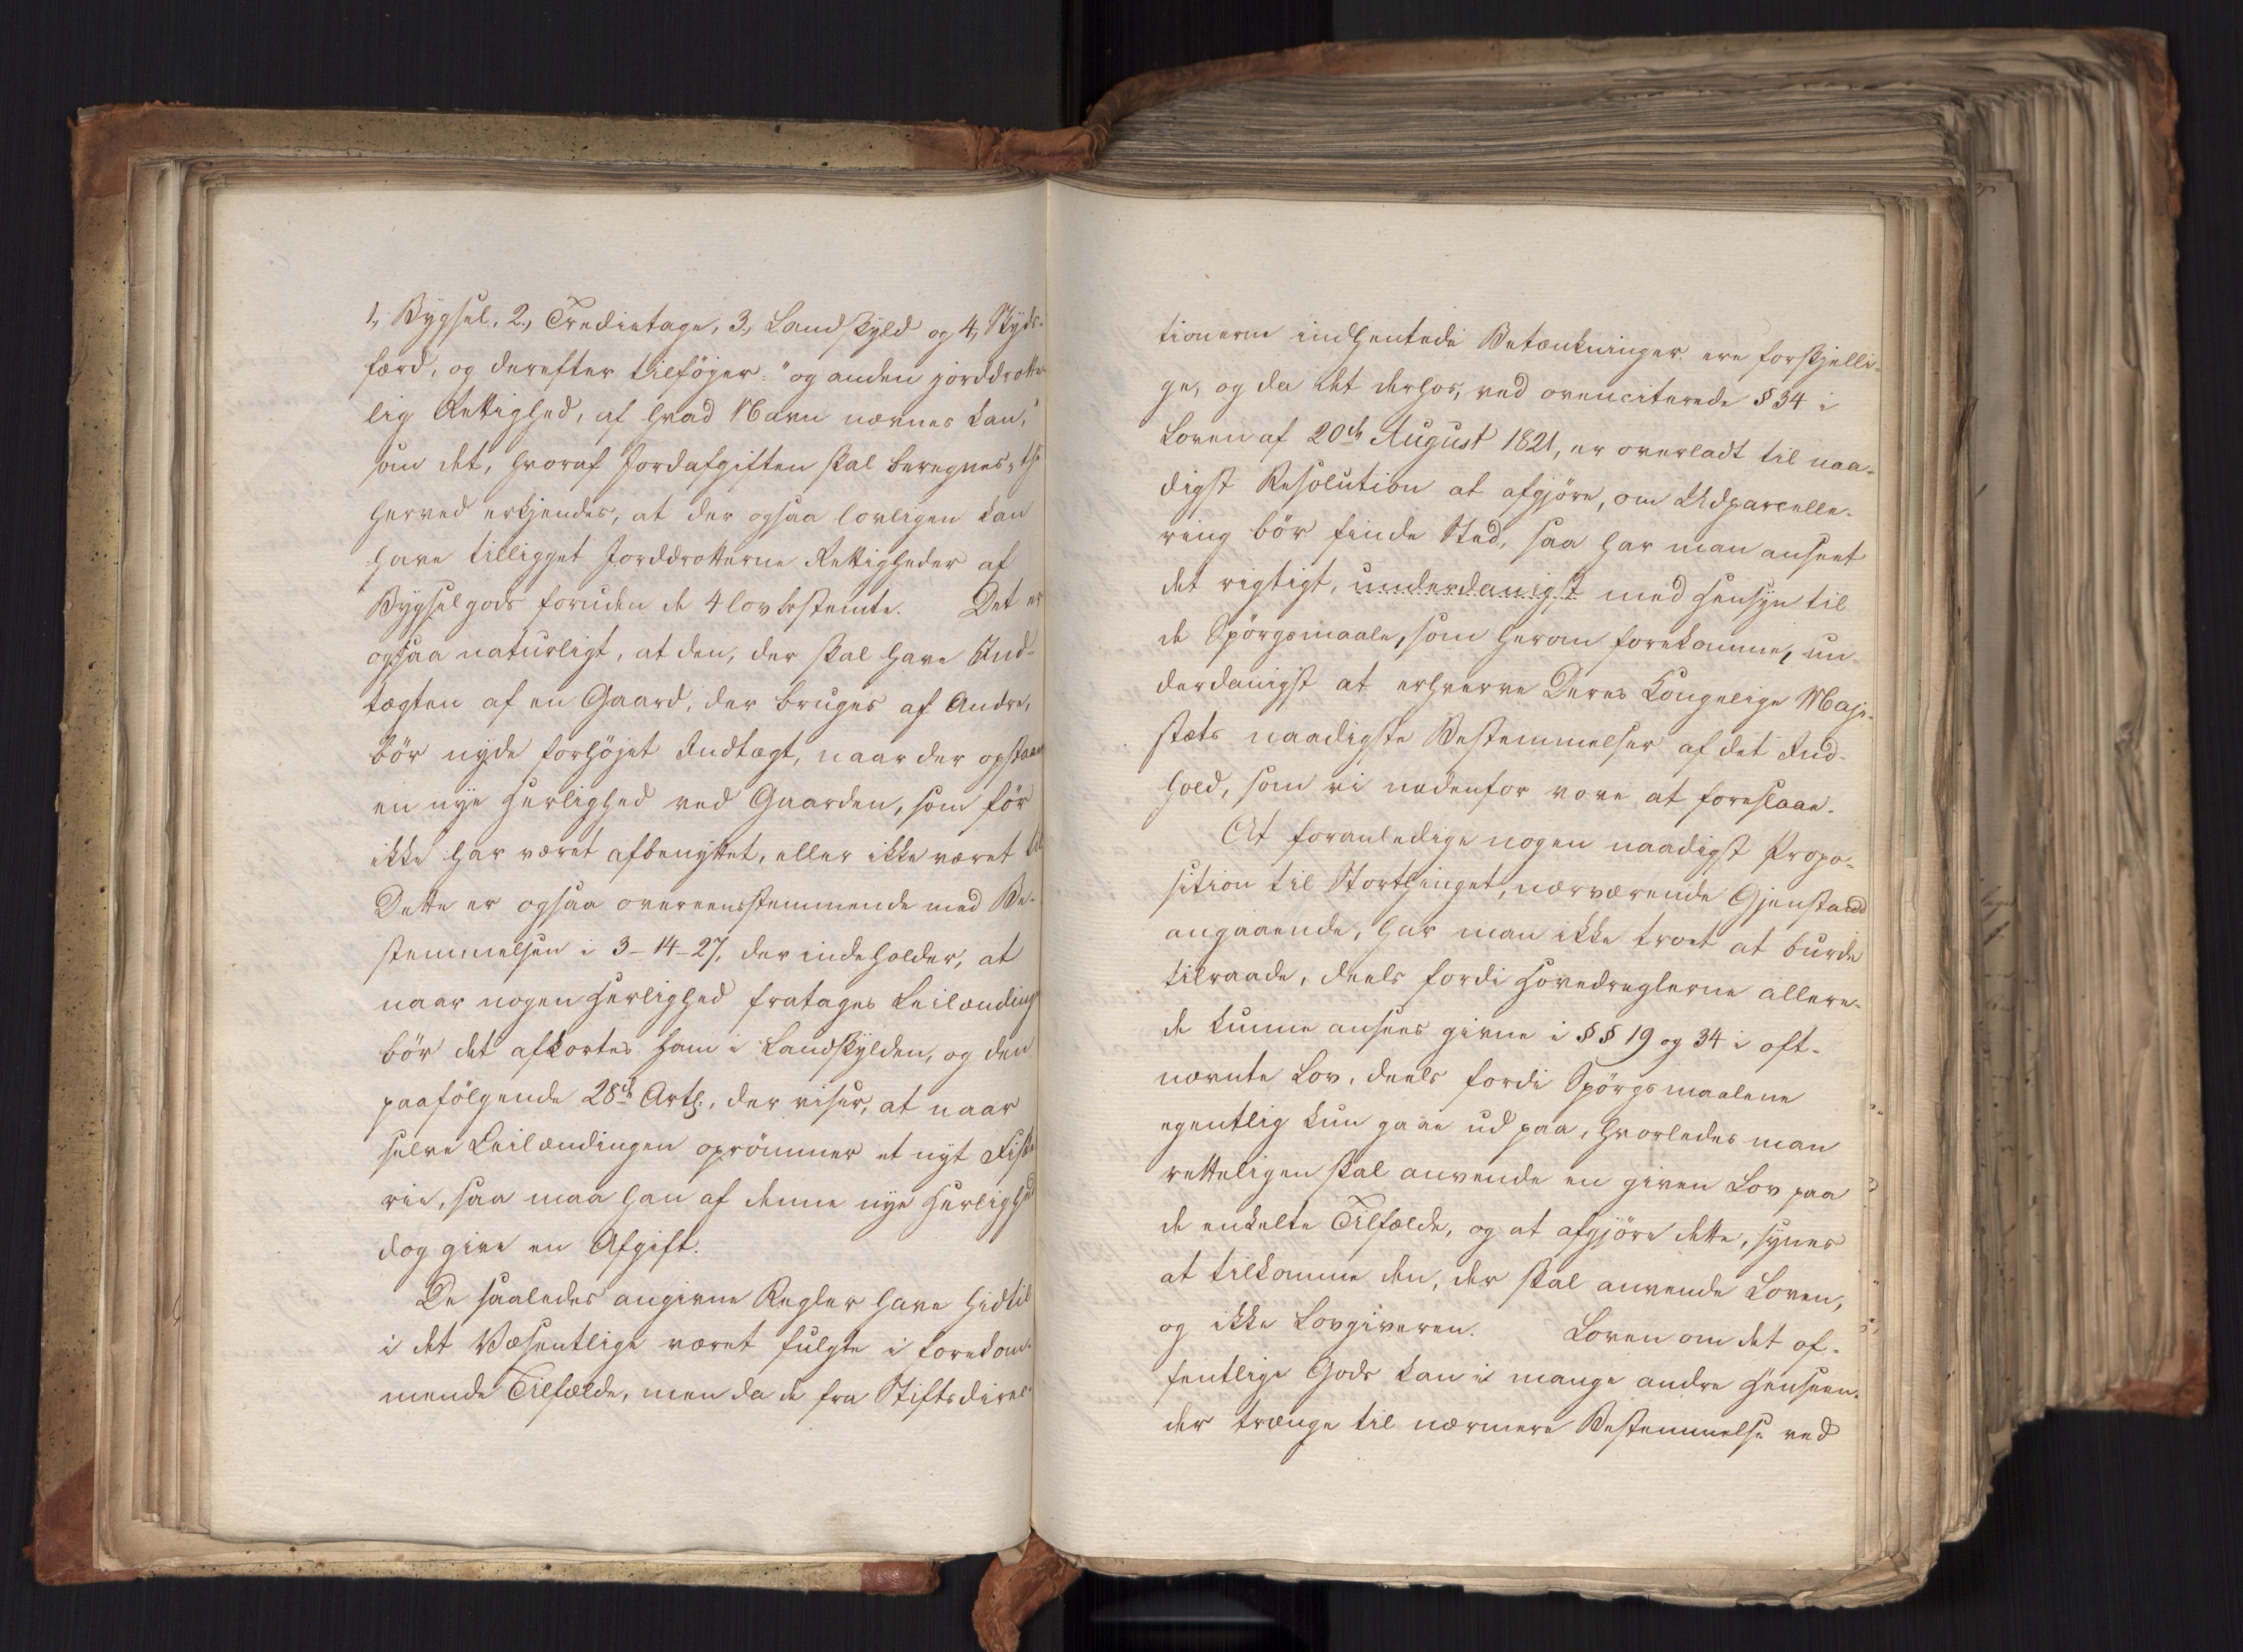 1, Bygsel, 2, Tredietage, 3, Landskyld og 4, Skyds-
færd, og derefter tilföger: "og anden jorddrotte-
lig Rettighed, af hvad Navn nævnes kan,"
som det, hvoraf Jordafgiften skal beregnes, thi
herved erkjendes, at der ogsaa lovligen kan
have tilligget Jorddrotterne Rettigheder af
Bygselgods foruden de 4 lovbestemte. Det er
ogsaa naturligt, at den, der skal have Ind-
tægten af en Gaard, der bruges af Andre,
bör nyde forhöjet Indtægt, naar der opstaaer
en nye Herlighed ved Gaarden, som för
ikke har været afbenyttet, eller ikke været til
Dette er ogsaa overeensstemmende med Be-
stemmelsen i 3-14-27, der indeholder, at
naar nogen Herlighed fratages Leilænding
bör det afkortes ham i Landskylden, og den
paafölgende 28de Artl., der viser, at naar
selve Leilændingen oprömmer et nyt Fiske
rie, saa maa han af denne nye Herlighed
dog give en Afgift.
De saaledes angivne Regler have hidtil
i det Væsentlige været fulgte i forekom-
mende Tilfælde, men da de fra Stiftsdirec-
tionerne indhentede Betænkninger ere forskjelli-
ge, og da det derhos, ved ovenciterede § 34 i
Loven af 20de August 1821, er overladt til naa-
digst Resolution at afgjöre, om Udparcelle-
ring bör finde Sted, saa har man anseet
det rigtigt, underdanigst med Hensyn til
de Spörgsmaale, som herom forekomme, un-
derdanigst at erhverve Deres Kongelige Maje-
stæts naadigste Bestemmelser af det Ind-
hold, som vi nedenfor vove at foreslaae.
At foranledige nogen naadigst Propo-
sition til Storthinget, nærværende Gjenstand
angaaende, har man ikke troet at burde
tilraade, deels fordi Hovedreglerne allere-
de kunne ansees givne i §§ 19 og 34 i oft-
nævnte Lov, deels fordi Spörgsmaalene
egentlig kun gaae ud paa, hvorledes man
retteligen skal anvende en given Lov paa
de enkelte Tilfælde, og at afgjöre dette, synes
at tilkomme den, der skal anvende Loven,
og ikke Lovgiveren. Loven om det of-
fentlige Gods kan i mange andre Henseen-
der trænge til nærmere Bestemmelse ved